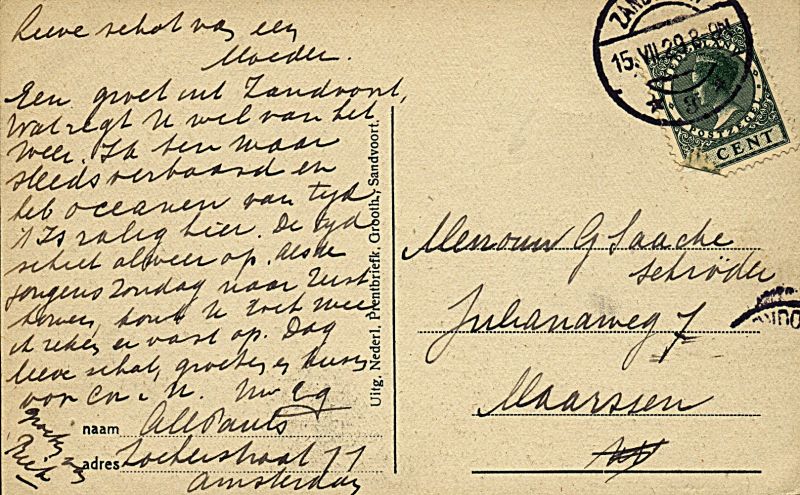 Lieve schat van een
Moeder.
Een groet uit Zandvoort,
Wat zegt U wel van het
weer. Ik ben maar
steeds verbaasd en
heb oceanen van tyd
't Is zalig hier. De tyd
schiet alweer op. Als de
jongens Zondag naar Zeist
komen, komt U toch mee
ik reken er vast op. Dag
lieve schat, groeten en kusjes
voor
naam
adres
Amsterdam
groetjes van
Uitg. Nederl. Prentbriefk. Grooth., Sandvoort.
15.VII.29.8
NEDERLAND
POSTZEGEL
CENT
Mevrouw G Saache
Schröder
Julianaweg 7
Maarssen